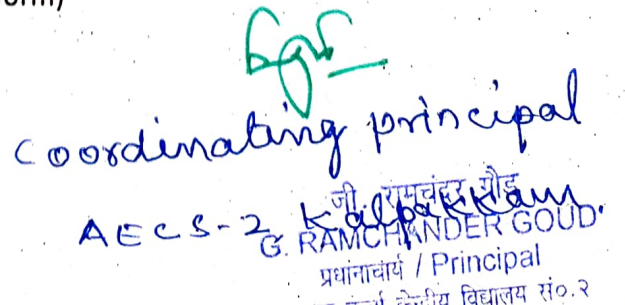 coordinating principal
AECS-2 Kalpakkam
जी. रामचंद्र गौड़
G. RAMCHANDER GOUD
प्रधानाचार्य / Principal
केन्द्रीय विद्यालय सं०.२